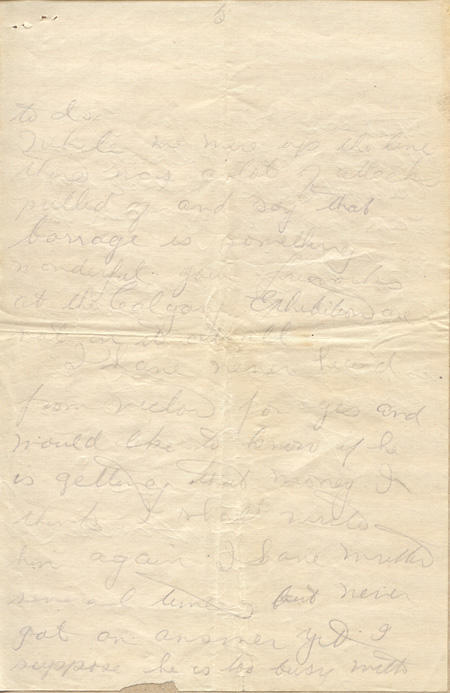 6
to do.
While we were up the line
there was a lot of attacks
pulled off and say that
barrage is something
wonderful. your fireworks
at the Calgary Exhibition are
not in it at all
I have never heard
from Victor for yrs and
would like to know if he
is getting that money I
think I shall write
him again. I have written
several times but never
got an answer yet. I
suppose he is too busy with